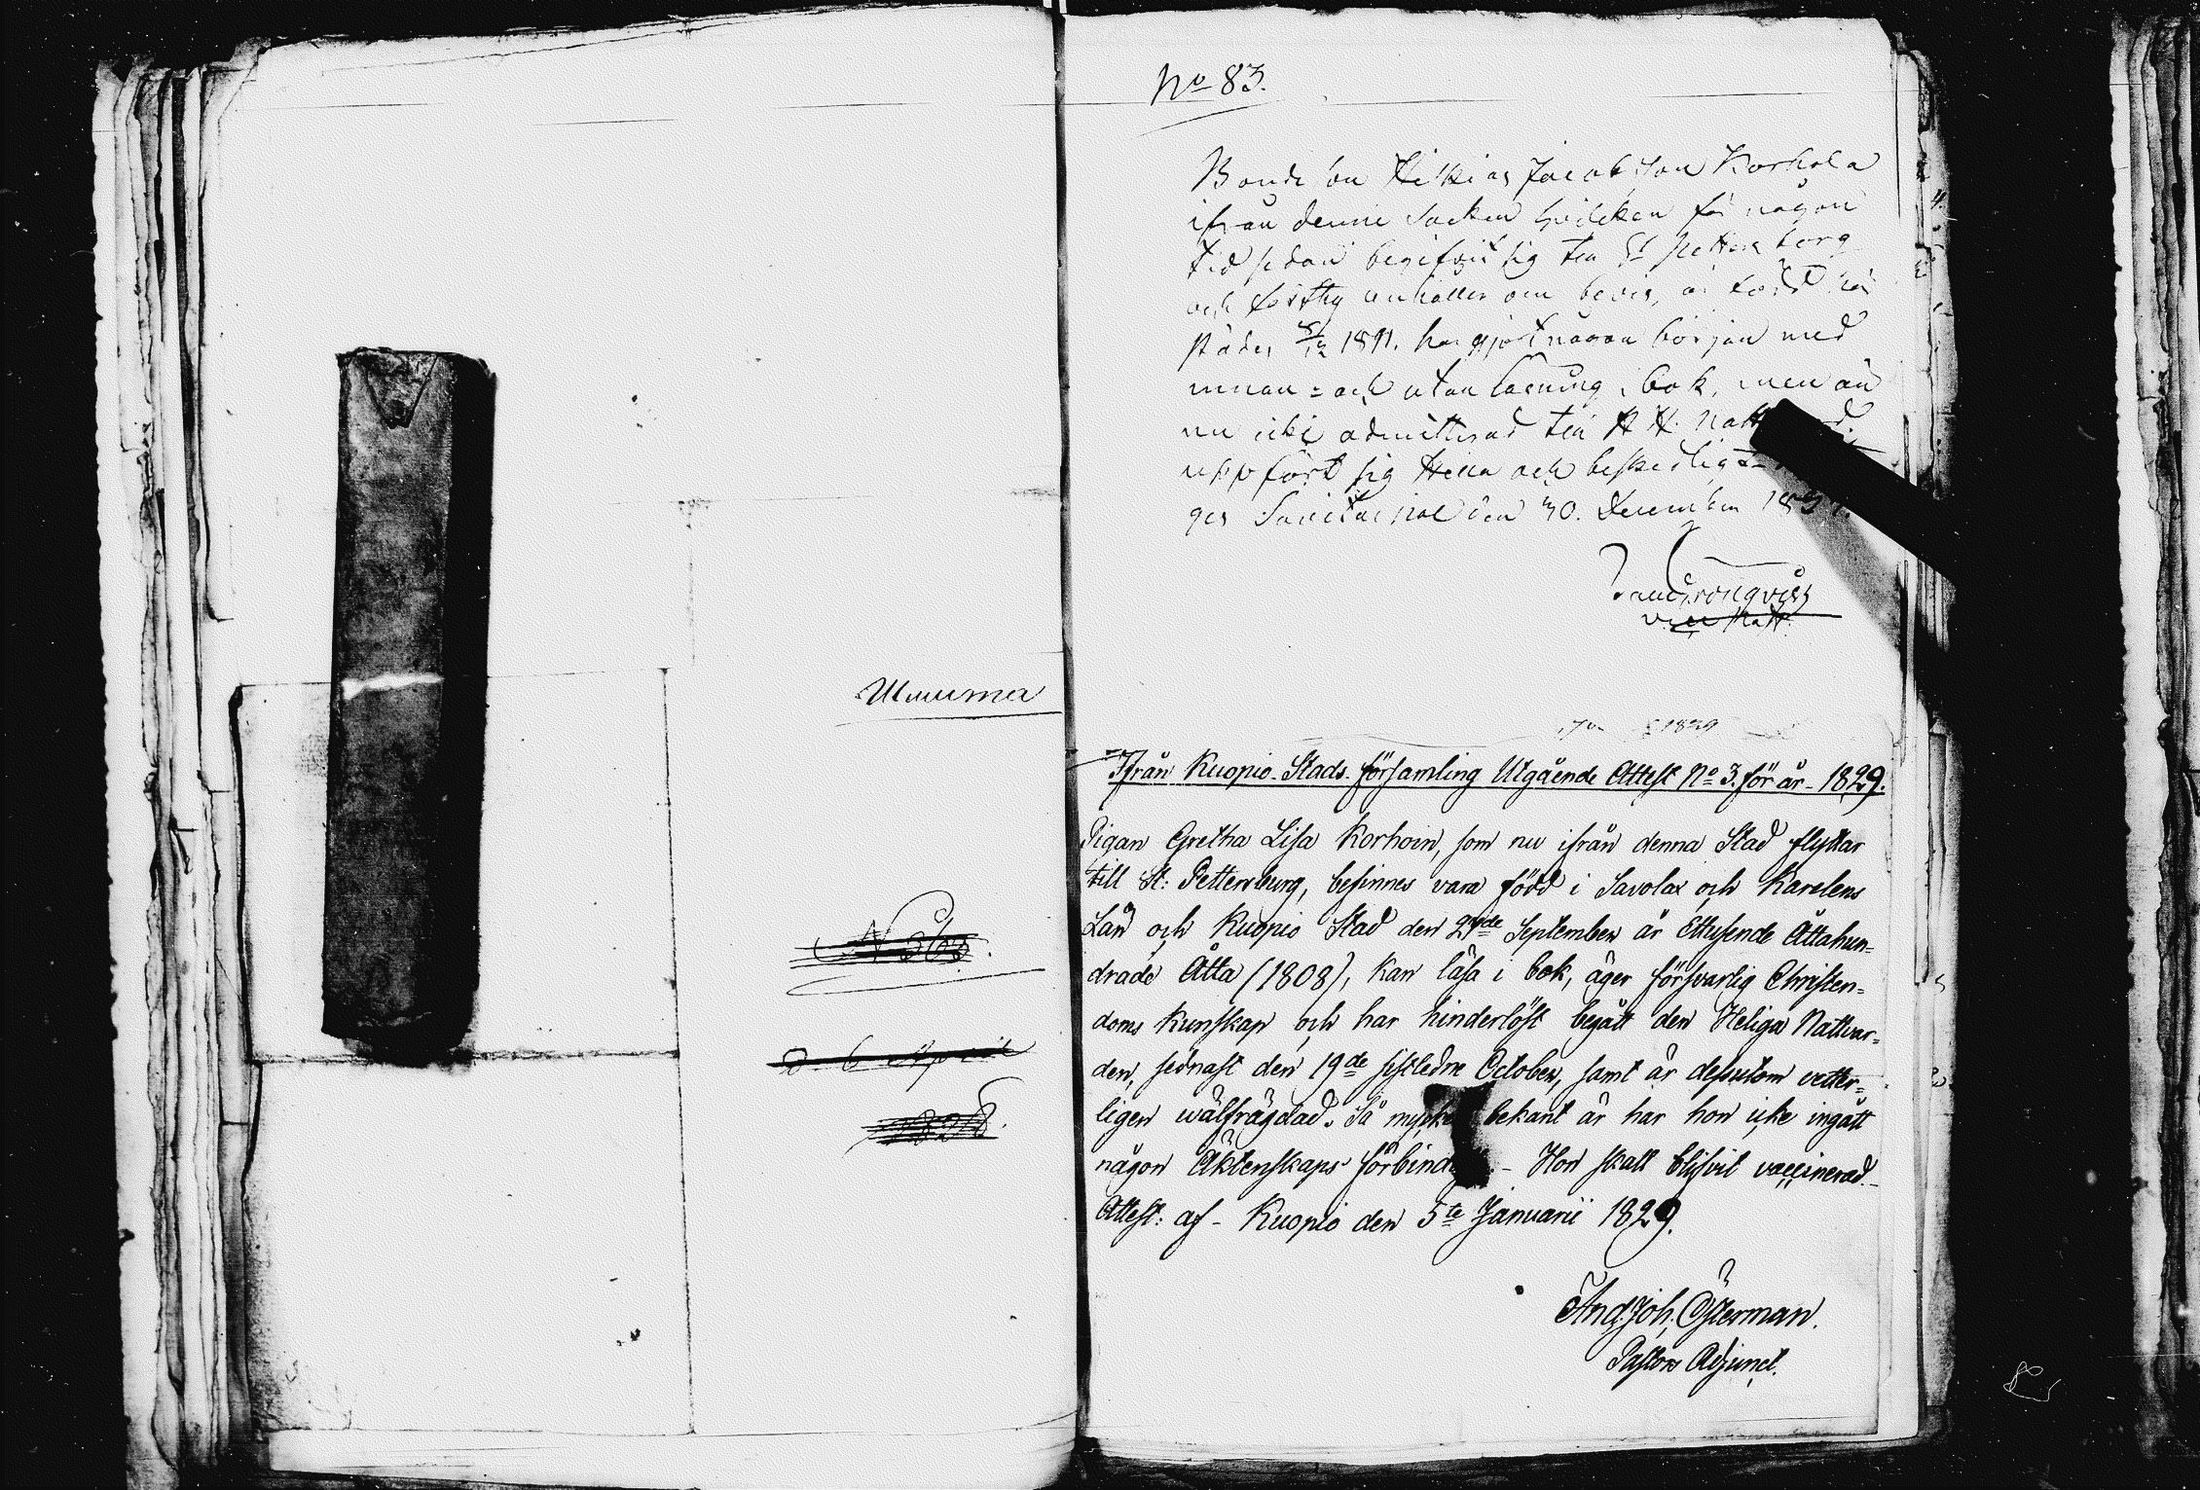 Mumma
d 6 April
No 83.
Bonde son Hiskias Jacobsson Korhola
ifrån denne Socken hvilcken för någon
tid sedan begifvit sig till St Pettersborg
och förthy anhåller om bevis, är född här
städes 1811. har gjort någon början med
innan = och utan läsning i bok, men än
nu icke admitterad till H. H. Natt
uppfört sig stilla och beskedligt
den 30. December
1829
Ifrån Kuopio Stads församling Utgående Attest No 3. för år 1829.
Pigan Gretha Lisa Korhoin, som nu ifrån denna Stad flyttar
till St: Pettersburg, befinnes vara född i Savolax och Karelens
Län och Kuopio Stad den September år Ettusende Åttahun=
drade Åtta (1808), kan läsa i bok, äger försvarlig Christen=
doms kunskap och har hinderlöst begått den Heliga Nattvar=
den, sednast den 19de sistledne October, samt är dessutom vetter=
ligen wälfrägdad. Så mycket bekant är har hon icke ingått
någon Äktenskaps förbind - Hon skall blifvit vaccinerad. -
Attest: af - Kuopio den 5te Januarii 1829.
And. Joh. Österman.
Pastors Adjunct.